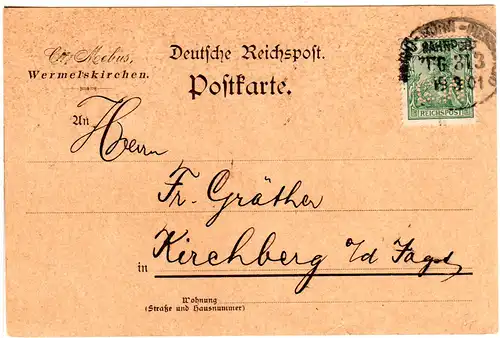 Ott. Mebus,
Wermelskirchen.
Deutsche Reichspost.
Postkarte.
BAHNPOST
ZUG 313
19.3.01
REICHSPOST
An
Herrn
Fr. Gräther
Kirchberg a/d Jagst
in
Wohnung
(Straße und Hausnummer)